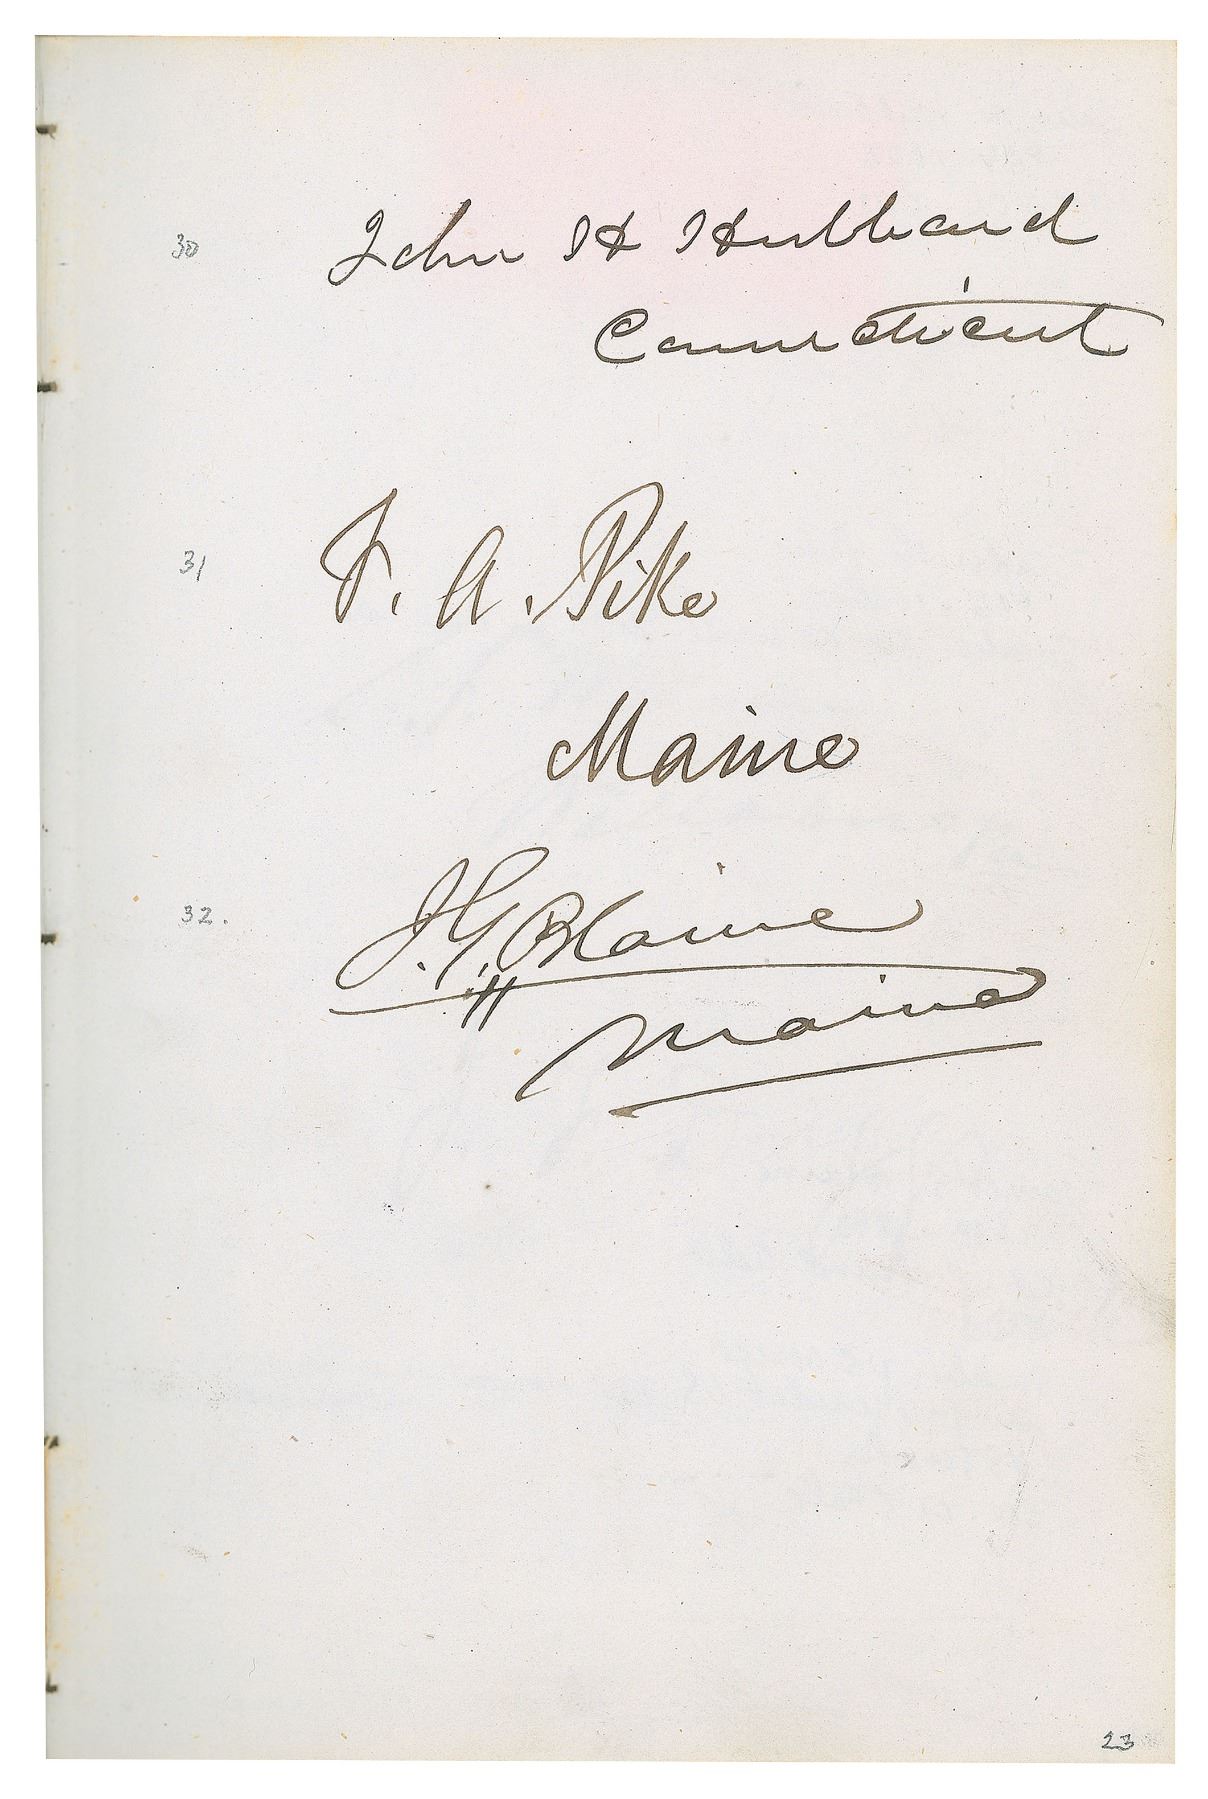 30 John H Hubbard
Connecticut
31 F. A. Pike
Maine
32. J. G. Blaine
Maine
23